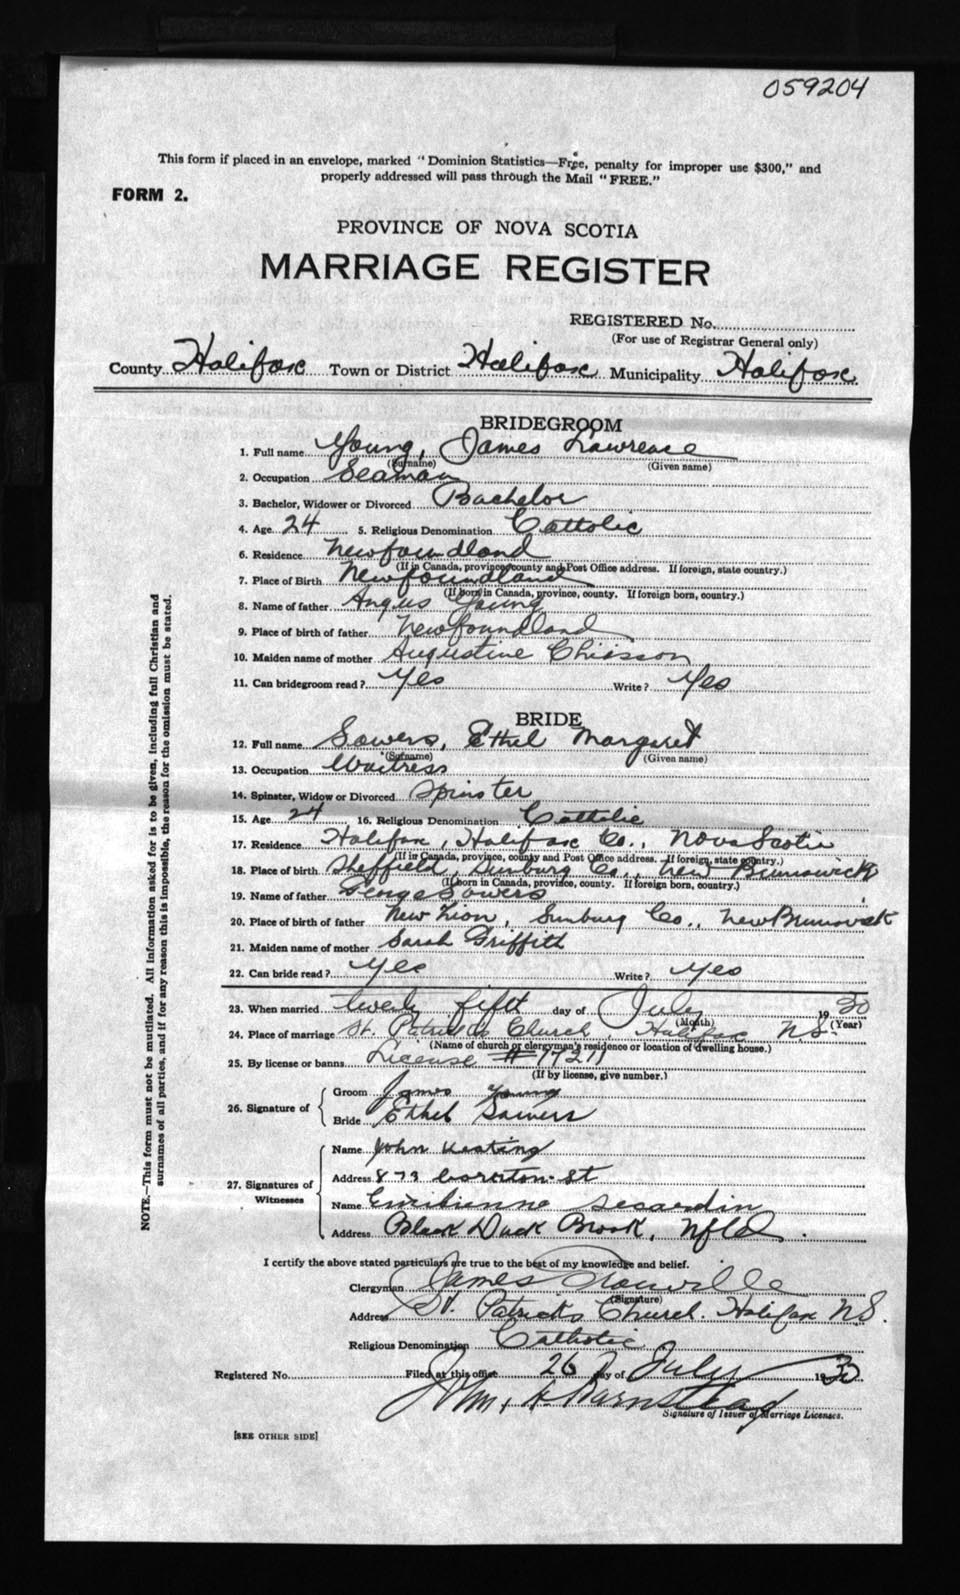 059204
This form if placed in an envelope, marked "Dominion Statistics—Free, penalty for improper use $300," and
properly addressed will pass through the Mail "FREE."
FORM 2.
PROVINCE OF NOVA SCOTIA
MARRIAGE REGISTER
REGISTERED No.
(For use of Registrar General only)
County Halifax Town or District Halifax Municipality Halifax
BRIDEGROOM
1. Full name Young, James Lawrence
(Surname) (Given name)
2. Occupation Seaman
3. Bachelor, Widower or Divorced Bachelor
4. Age 24 5. Religious Denomination Cattolic
6. Residence Newfoundland
(If in Canada, province, county and Post Office address. If foreign, state country.)
7. Place of Birth Newfoundland
(If born in Canada, province, county. If foreign born, country.)
8. Name of father Angus Young
9. Place of birth of father Newfoundland
10. Maiden name of mother Augustine Chiasson
11. Can bridegroom read? Yes Write? Yes
BRIDE
12. Full name Sowers, Ethel Margaret
(Surname) (Given name)
13. Occupation Waitress
14. Spinster, Widow or Divorced Spinster
15. Age 24 16. Religious Denomination Cattolic
17. Residence Halifax, Halifax Co., Nova Scotia
(If in Canada, province, county and Post Office address. If foreign, state country.)
18. Place of birth Sheffield, Sunbury Co., New Brunswick
(If born in Canada, province, county. If foreign born, country.)
19. Name of father George Sowers
20. Place of birth of father New Zion, Sunbury Co., New Brunswick
21. Maiden name of mother Sarah Griffith
22. Can bride read? Yes Write? Yes
23. When married twenty fift day of July 1930
(Month) (Year)
24. Place of marriage St. Patricks Church Halifax N.S.
(Name of church or clergyman's residence or location of dwelling house.)
25. By license or banns License #
(If by license, give number.)
26. Signature of
Groom James Young
Bride Ethel Sowers
27. Signatures of Witnesses
Name John Keating
Address 873 St
Name
Address Black Duck Brook, Nfld.
I certify the above stated particulars are true to the best of my knowledge and belief.
Clergyman James
(Signature)
Address St. Patricks Church. Halifax N.S.
Religious Denomination Catholic
Registered No. Filed at this office 26 day of July 1930
John H Barnstead
Signature of Issuer of Marriage Licenses.
[SEE OTHER SIDE]
NOTE.—This form must not be mutilated. All information asked for is to be given, including full Christian and
surnames of all parties, and if for any reason this is impossible, the reason for the omission must be stated.